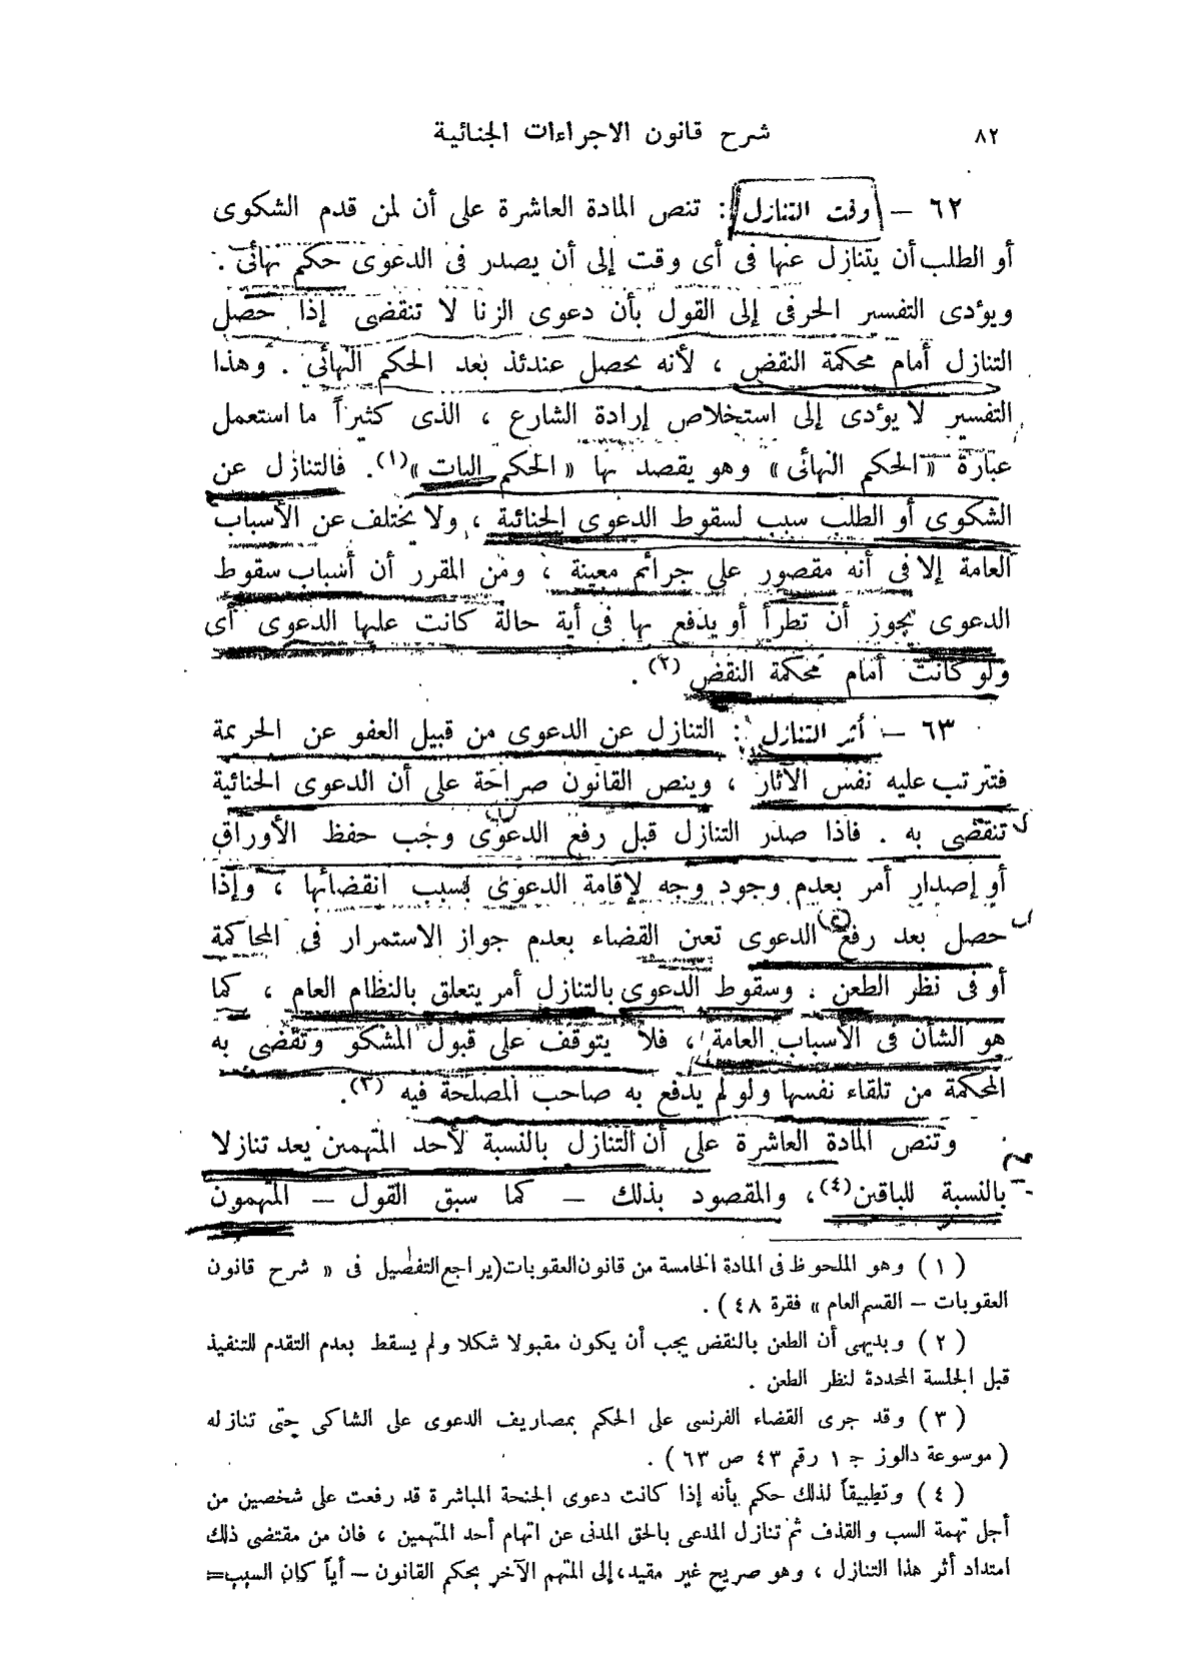 ٨٢
شرح قانون الاجراءات الجنائية
٦٢ – وقت التنازل : تنص المادة العاشرة على أن لمن قدم الشكوى
أو الطلب أن يتنازل عنها فى أى وقت إلى أن يصدر فى الدعوى حكم نهائى .
ويؤدى التفسير الحرفى إلى القول بأن دعوى الزنا لا تنقضى إذا حصل
التنازل أمام محكمة النقض ، لأنه يحصل عندئذ بعد الحكم النهائى . وهذا
التفسير لا يؤدى إلى استخلاص إرادة الشارع ، الذى كثيراً ما استعمل
عبارة « الحكم النهائى » وهو يقصد بها « الحكم البات »(١). فالتنازل عن
الشكوى أو الطلب سبب لسقوط الدعوى الجنائية ، ولا يختلف عن الأسباب
العامة إلا فى أنه مقصور على جرائم معينة ، ومن المقرر أن أسباب سقوط
الدعوى يجوز أن تطرأ أو يدفع بها فى أية حالة كانت عليها الدعوى أى
ولو كانت أمام محكمة النقض (٢) .
٦٣ – أثر التنازل : التنازل عن الدعوى من قبيل العفو عن الجريمة
فتترتب عليه نفس الآثار ، وينص القانون صراحة على أن الدعوى الجنائية
تنقضى به . فاذا صدر التنازل قبل رفع الدعوى وجب حفظ الأوراق
أو إصدار أمر بعدم وجود وجه لإقامة الدعوى بسبب انقضائها ، وإذا
حصل بعد رفع الدعوى تعين القضاء بعدم جواز الاستمرار فى المحاكمة
أو فى نظر الطعن . وسقوط الدعوى بالتنازل أمر يتعلق بالنظام العام ، كما
هو الشأن فى الأسباب العامة ، فلا يتوقف على قبول المشكو وتقضى به
المحكمة من تلقاء نفسها ولو لم يدفع به صاحب المصلحة فيه (٣).
وتنص المادة العاشرة على أن التنازل بالنسبة لأحد المتهمين يعد تنازلا
بالنسبة للباقين(٤)، والمقصود بذلك – كما سبق القول – المتهمون
(١) وهو الملحوظ فى المادة الخامسة من قانون العقوبات(يراجع التفصيل فى « شرح قانون
العقوبات – القسم العام » فقرة ٤٨ ) .
(٢) وبديهى أن الطعن بالنقض يجب أن يكون مقبولا شكلا ولم يسقط بعدم التقدم للتنفيذ
قبل الجلسة المحددة لنظر الطعن .
(٣) وقد جرى القضاء الفرنسى على الحكم بمصاريف الدعوى على الشاكى حتى تنازله
( موسوعة دالوز ج ١ رقم ٤٣ ص ٦٣ ) .
(٤) وتطبيقاً لذلك حكم بأنه إذا كانت دعوى الجنحة المباشرة قد رفعت على شخصين من
أجل تهمة السب والقذف ثم تنازل المدعى بالحق المدنى عن اتهام أحد المتهمين ، فان من مقتضى ذلك
امتداد أثر هذا التنازل ، وهو صريح غير مقيد، إلى المتهم الآخر بحكم القانون – أياً كان السبب=